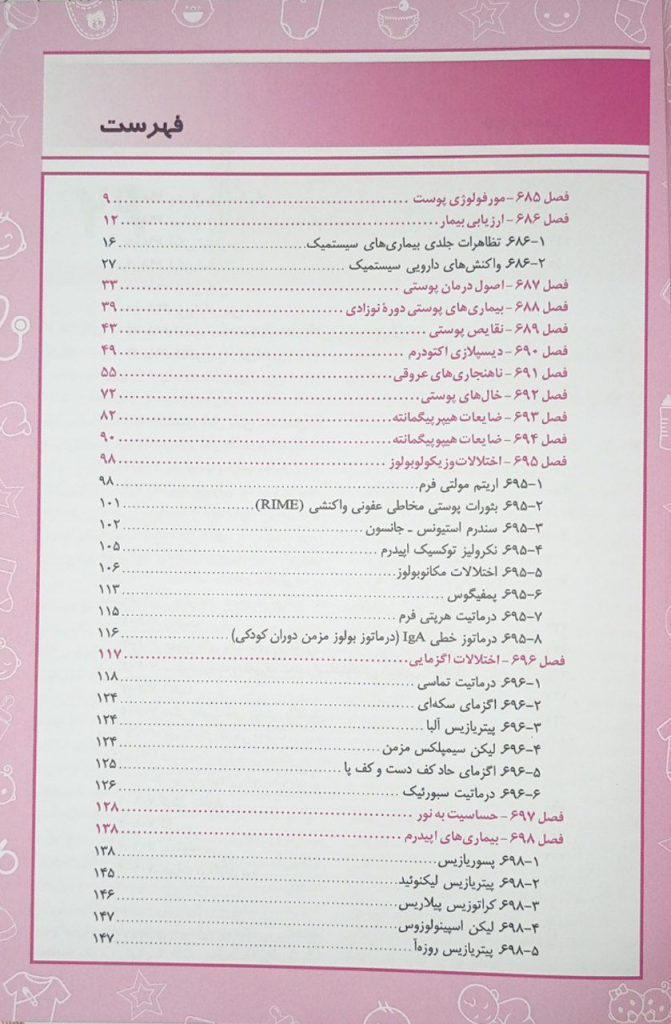 فهرست
فصل ۶۸۵ - مورفولوژی پوست ........ ۹
فصل ۶۸۶ - ارزیابی بیمار ........ ۱۲
۶۸۶-۱. تظاهرات جلدی بیماری‌های سیستمیک ........ ۱۶
۶۸۶-۲. واکنش‌های دارویی سیستمیک ........ ۲۷
فصل ۶۸۷ - اصول درمان پوستی ........ ۳۳
فصل ۶۸۸ - بیماری‌های پوستی دورۀ نوزادی ........ ۳۹
فصل ۶۸۹ - نقایص پوستی ........ ۴۳
فصل ۶۹۰ - دیسپلازی اکتودرم ........ ۴۹
فصل ۶۹۱ - ناهنجاری‌های عروقی ........ ۵۵
فصل ۶۹۲ - خال‌های پوستی ........ ۷۲
فصل ۶۹۳ - ضایعات هیپرپیگمانته ........ ۸۲
فصل ۶۹۴ - ضایعات هیپوپیگمانته ........ ۹۰
فصل ۶۹۵ - اختلالات وزیکولوبولوز ........ ۹۸
۶۹۵-۱. اریتم مولتی فرم ........ ۹۸
۶۹۵-۲. بثورات پوستی مخاطی عفونی واکنشی (RIME) ........ ۱۰۱
۶۹۵-۳. سندرم استیونس ـ جانسون ........ ۱۰۲
۶۹۵-۴. نکرولیز توکسیک اپیدرم ........ ۱۰۵
۶۹۵-۵. اختلالات مکانوبولوز ........ ۱۰۶
۶۹۵-۶. پمفیگوس ........ ۱۱۳
۶۹۵-۷. درماتیت هرپتی فرم ........ ۱۱۵
۶۹۵-۸. درماتوز خطی IgA (درماتوز بولوز مزمن دوران کودکی) ........ ۱۱۶
فصل ۶۹۶ - اختلالات اگزمایی ........ ۱۱۷
۶۹۶-۱. درماتیت تماسی ........ ۱۱۸
۶۹۶-۲. اگزمای سکه‌ای ........ ۱۲۴
۶۹۶-۳. پیتریازیس آلبا ........ ۱۲۴
۶۹۶-۴. لیکن سیمپلکس مزمن ........ ۱۲۴
۶۹۶-۵. اگزمای حاد کف دست و کف پا ........ ۱۲۵
۶۹۶-۶. درماتیت سبورئیک ........ ۱۲۶
فصل ۶۹۷ - حساسیت به نور ........ ۱۲۸
فصل ۶۹۸ - بیماری‌های اپیدرم ........ ۱۳۸
۶۹۸-۱. پسوریازیس ........ ۱۳۸
۶۹۸-۲. پیتریازیس لیکنوئید ........ ۱۴۵
۶۹۸-۳. کراتوزیس پیلاریس ........ ۱۴۶
۶۹۸-۴. لیکن اسپینولوزوس ........ ۱۴۷
۶۹۸-۵. پیتریازیس روزه‌آ ........ ۱۴۷